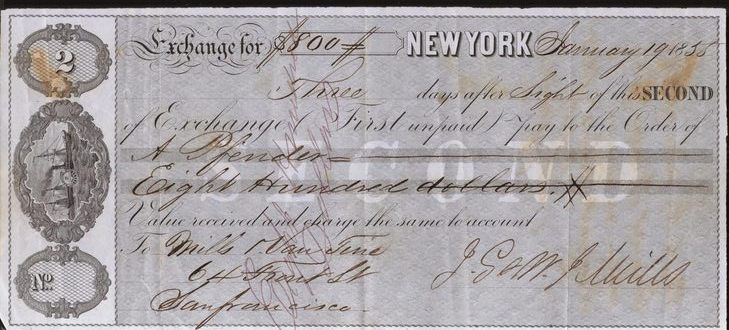 2
Exchange for $800 # NEW YORK January 19 1855
Three days after Sight of this SECOND
of Exchange (First unpaid) pay to the Order of
A Pfender
SECOND
Eight Hundred dollars. #
Value received and charge the same to account
To Mills & Van Tine
64 Front St
San francisco
J. Mills
No.